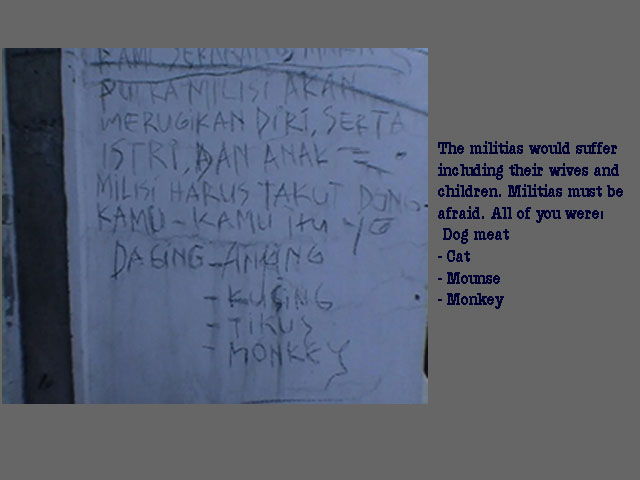 PUTRA MILISI AKAN
MERUGIKAN DIRI, SERTA
ISTRI, DAN ANAK
MILISI HARUS TAKUT DONG
KAMU - KAMU itu
DAGING - ANJING
- KUCING
- TIKUS
- MONKEY
The militias would suffer
including their wives and
children. Militias must be
afraid. All of you were:
Dog meat
- Cat
- Mounse
- Monkey